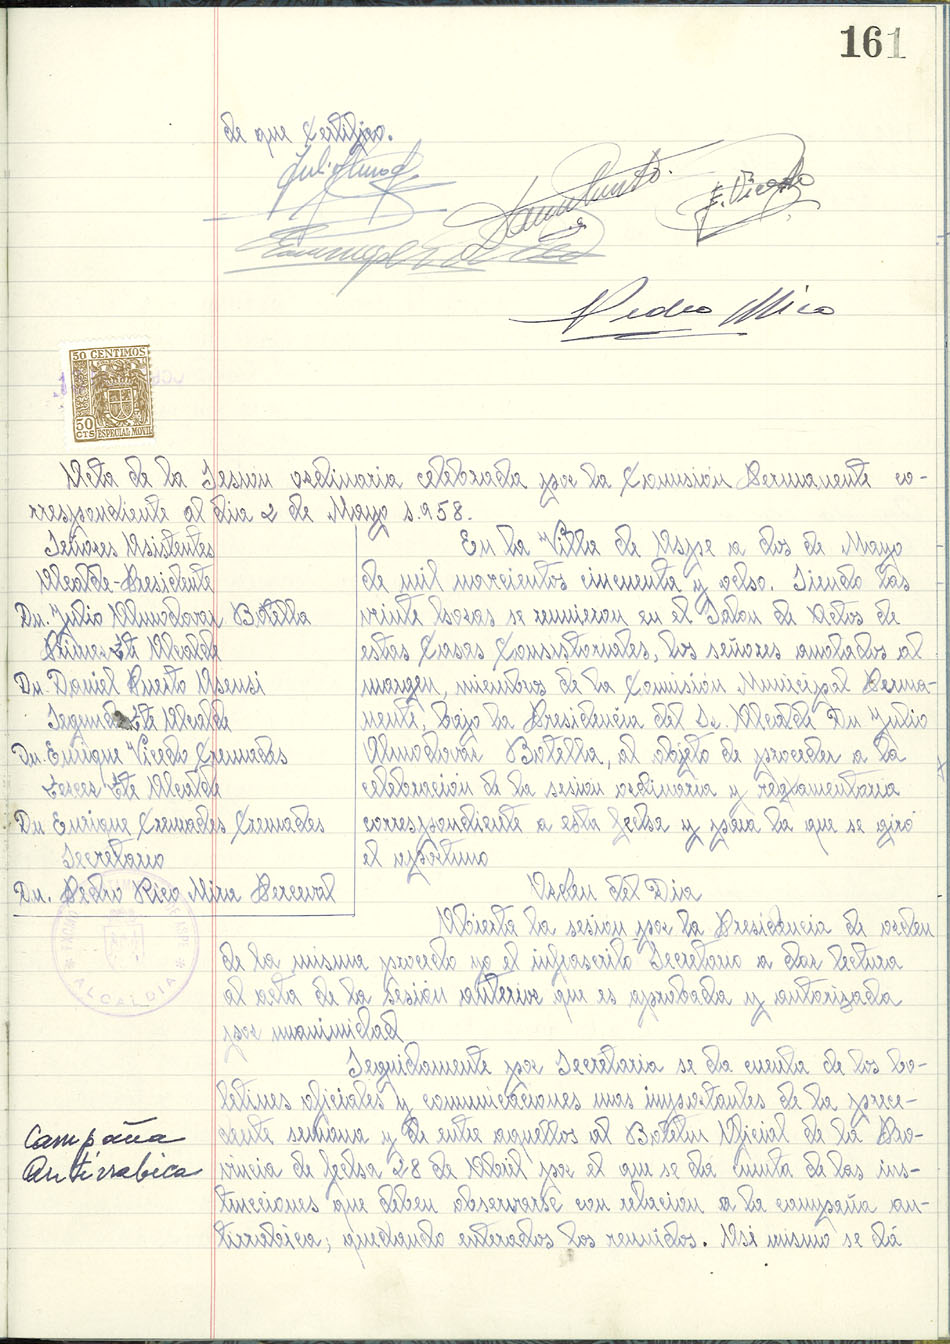 161
de que certifico.
Pedro Mira
50 CENTIMOS
50
CTS
ESPECIAL MOVIL
Acta de la Sesion ordinaria celebrada por la Comisión Permanente co-
rrespondiente al dia 2 de Mayo 1.958.
Señores Asistentes
Alcalde-Presidente
Dn. Julio Almodovar Botella
Primer Tte Alcalde
Dn. Daniel Puerto Asensi
Segundo Tte Alcalde
Dn. Enrique Vicedo Cremades
Tercer Tte Alcalde
Dn Enrique Cremades Cremades
Secretario
Dn. Pedro Rico Mira Perceval
ALCALDIA
En la Villa de Aspe a dos de Mayo
de mil novecientos cincuenta y ocho. Siendo las
veinte horas se reunieron en el Salon de Actos de
estas Casas Consistoriales, los señores anotados al
margen, miembros de la Comisión Municipal Perma-
nente, bajo la Presidencia del Sr. Alcalde Dn Julio
Almodovar Botella, al objeto de proceder a la
celebración de la sesion ordinaria y reglamentaria
correspondiente a esta fecha y para la que se giró
el oportuno
Orden del Dia
Abierta la sesion por la Presidencia de orden
de la misma procedo yo el infrascrito Secretario a dar lectura
al acta de la sesión anterior que es aprobada y autorizada
por unanimidad
Seguidamente por Secretaria se da cuenta de los bo-
letines oficiales y comunicaciones mas importantes de la prece-
dente semana y de entre aquellos al Boletin Oficial de la Pro-
vincia de fecha 28 de Abril por el que se dá cuenta de las ins-
trucciones que deben observarse con relacion a la campaña an-
tirrabica; quedando enterados los reunidos. Asi mismo se dá
Campaña
Antirrabica